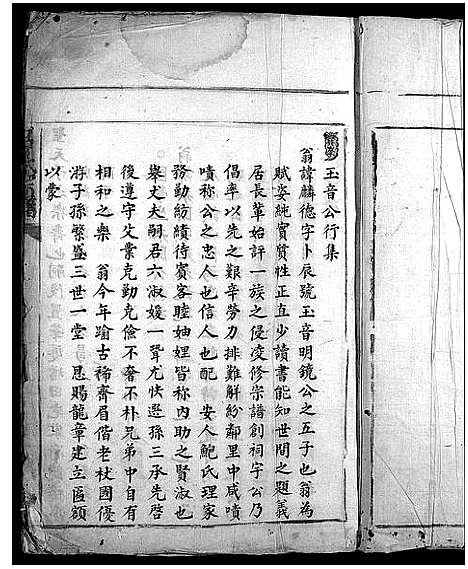 玉音公行集
翁諱麟德字卜辰號玉音明鏡公之五子也翁為
賦姿純實質性正直少讀書能知世間之題義
居長輩始評一族之侵凌修宗譜創祠宇公乃
倡率以先之艱辛勞力排難解紛鄰里中咸嘖
嘖称公之忠人也信人也配　安人鮑氏理家
務勤紡績待賓客睦妯娌皆称內助之賢淑也
舉丈夫嗣君六淑媛一聟尤快遜孫三承先啓
後遵守父業克勤克儉不奢不朴兄弟中自有
相和之樂　翁今年踰古稀齊眉偕老杖國優
游子孫繁盛三世一堂　恩賜龍章建立匾額
以蒙